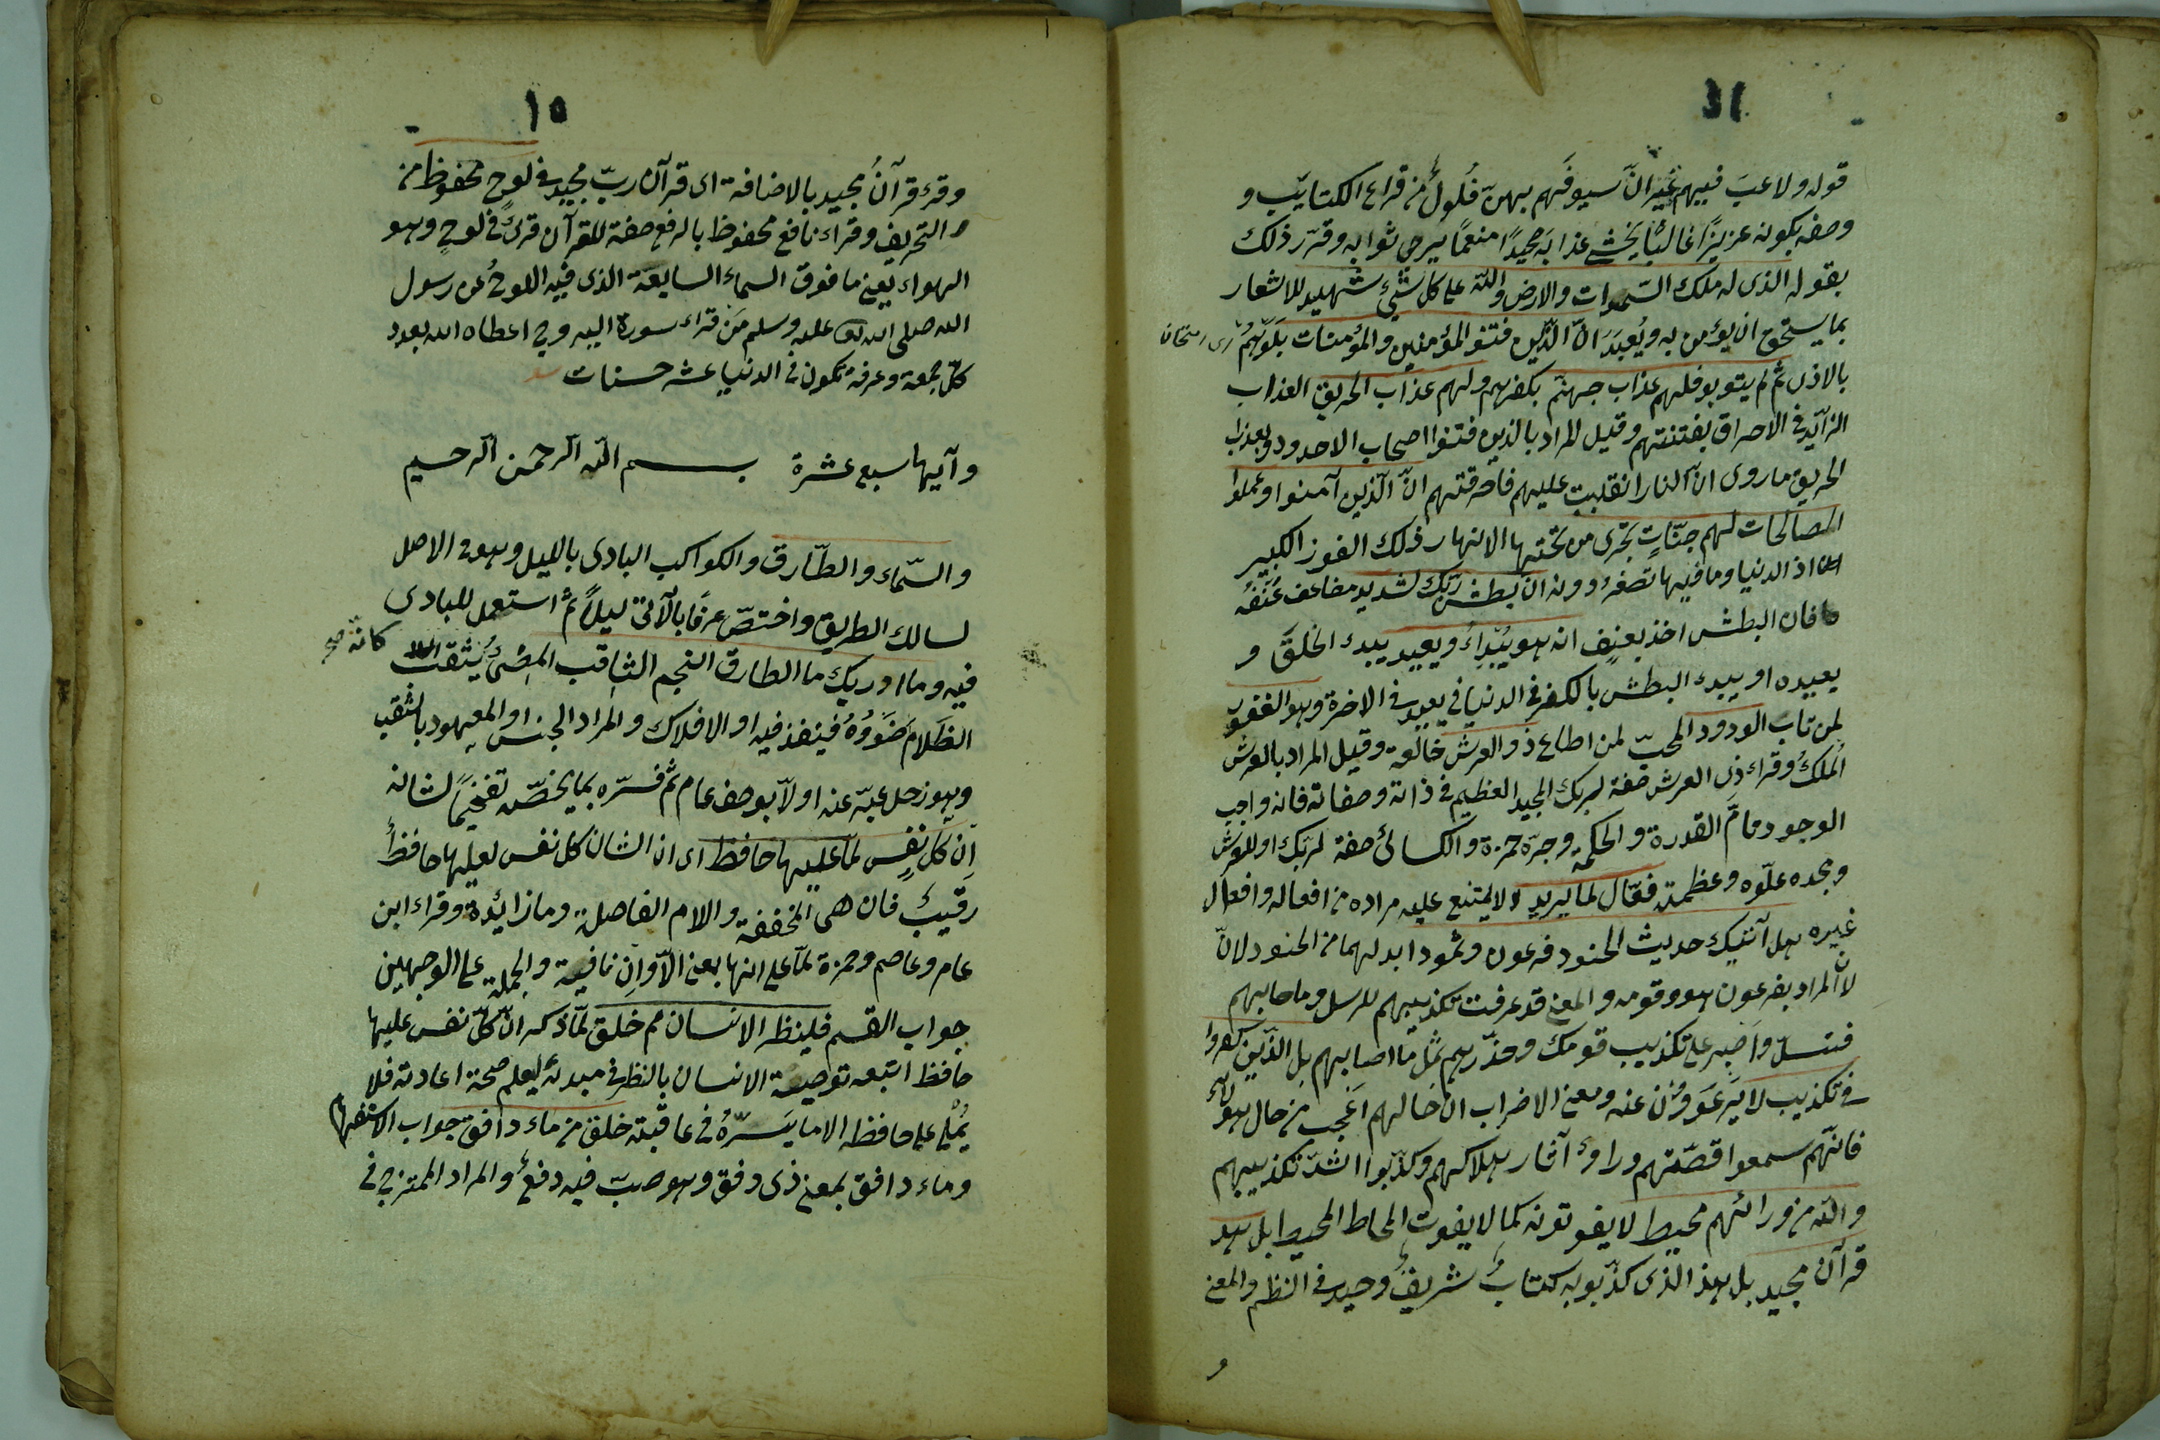 ١٤
قوله ولا عيبَ فيهم غير انّ سيوفَهم بهنّ فُلُولٌ من قراع الكتايب و
وصفه بكونه عزيزًا غالبًا يخشى عذابه حميدًا منعمًا يرجى ثوابه وقرّر ذلك
بقوله الذى له ملك السّموات والارض والله على كل شئ شهيد للاشعار
بما يستحق ان يؤمن به ويُعبَدَ انّ الّذين فتنوا المؤمنين والمؤمنات بَلَوْهُمْ
بالاذى ثم لم يتوبوا فلهم عذاب جهنّم بكفرهم ولهم عذاب الحريق العذاب
الزايد فى الاحراق بفتنتهم وقيل المراد بالذين فتنوا اصحاب الاخدود وبعذاب
الحريق ما روى انّ النار انقلبت عليهم فاحرقتهم انّ الّذين آمنوا وعملوا
الصالحات لهم جنّاتٍ تجرى من تحتها الانهار ذلك الفوز الكبير
اذ الدنيا وما فيها تصغر دونه انّ بطش ربّك لشديد مضاعف عُنْفُه
فان البطش اخذ بعنف انه هو يُبْدِئُ ويعيد يبدء الخلقَ و
يعيده او يبدء البطش بالكفر فى الدنيا فى يعيد فى الاخرة وهو الغفور
لمن تاب الودود المحبّ لمن اطاع ذو العرش خالقه وقيل المراد بالعرش
الملكُ وقراء ذى العرش صفة لربك المجيد العظيم فى ذاته وصفاته فانه واجب
الوجود تامّ القدرة والحكمة وجرّه حمزة والكسائى صفة لربّك او للعرش
ومجده علوّه وعظمته فعّال لما يريد ولا يمتنع عليه مراده من افعاله وافعال
غيره هل آتيك حديث الجنود فرعون وثمود ابدلهما من الجنود لانّ
لانّ المراد بفرعون هو وقومه والمعنى قد عرفت تكذيبهم للرسل وما حاق بهم
فتسلّ واصبر على تكذيب قومك وحذّرهم مثل ما اصابهم بل الّذين كفروا
فى تكذيب لا يَرْعَوُوْنَ عنه ومعنى الاضراب انّ حالهم اعجب من حال هولاء
فانّهم سمعوا قصّتهم وراوْ آثار هلاكهم وكذّبوا اشدّ تكذيبهم
والله من ورائهم محيط لا يفوتونه كما لا يفوت المحاط المحيط بل هو
قرآن مجيد بل هذا الذى كذّبوا به كتابٌ شريفٌ وحيد فى النظم والمعنى
و
١٥
وقرئ قرآنُ مجيدٍ بالاضافة اى قرآن ربّ مجيد فى لوحٍ محفوظ من
التحريف وقراء نافع محفوظ بالرفع صفة للقرآن قرئ فى لوحٍ وهو
الهواء يعنى ما فوق السماء السابعة الذى فيه اللوحُ عن رسول
الله صلى الله تعالى عليه وسلم مَن قراء سورة البروج اعطاه الله بعدد
كلّ جمعة وعرفة تكون فى الدنيا عشر حسنات
وآيها سبع عشرة بسم الله الرحمن الرحيم
والسّماء والطّارق والكواكب البادى بالليل وهو فى الاصل
لسالك الطريق واختصّ عرفًا بالآتى ليلًا ثم استعمل للبادى
فيه وما ادريك ما الطارق النجم الثاقب المضئُ كانّه صح يثقب
الظّلامَ ضَوْوُهُ فينفذ فيه او الافلاك والمراد الجنس او المعهود بالثقب
وهو زحل عبّر عنه اولًا بوصف عام ثم فسّره بما يخصّه تفخيمًا لشانه
اِن كلّ نفسٍ لما عليها حافظ اى ان الشان كل نفس لعليها حافظٌ
رقيبٌ فان هى المخففة واللام الفاصلة وما زائدة وقراء ابن
عامر وعاصم وحمزة لمّا على انها بمعنى الّا واِن نافية والجملة على الوجهين
جواب القسم فلينظر الانسان مم خلق لمّا ذكر انّ كلّ نفس عليها
حافظ اتبعه توصية الانسان بالنظر فى مبدئه ليعلم صحة اعادته فلا
يُمْلِى على حافظه الا ما يَسُرّهُ فى عاقبته خلق من ماء دافق جواب الاستفهام
وماء دافق بمعنى ذى دفق وهو صبّ فيه دفعٌ والمراد الممتزج فى